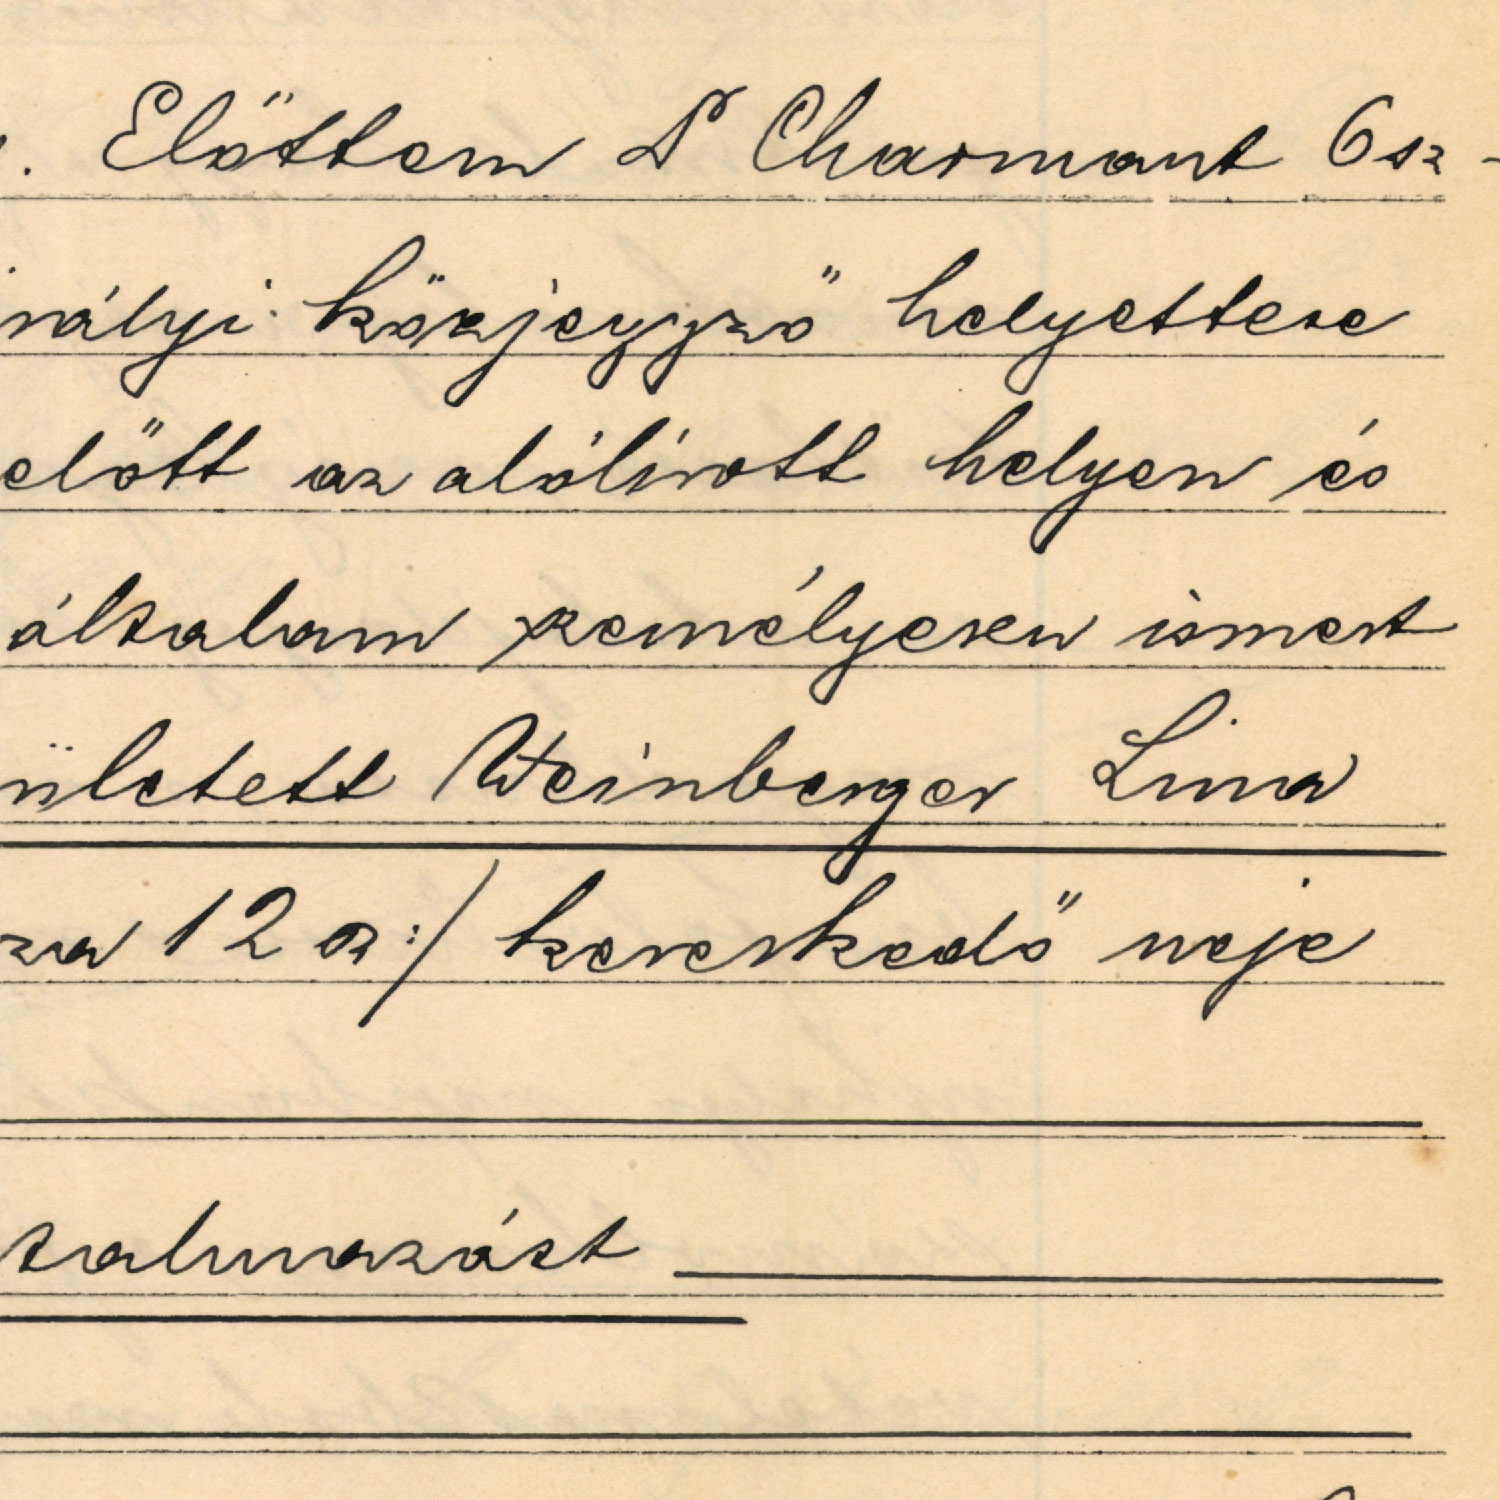 . Előttem Dr Charmant Osz-
rályi közjegyző helyettese
előtt az alólirott helyen és
általam személyesen ismert
ületett Weinberger Lina
za 12 sz:/ kereskedő neje
talmazást